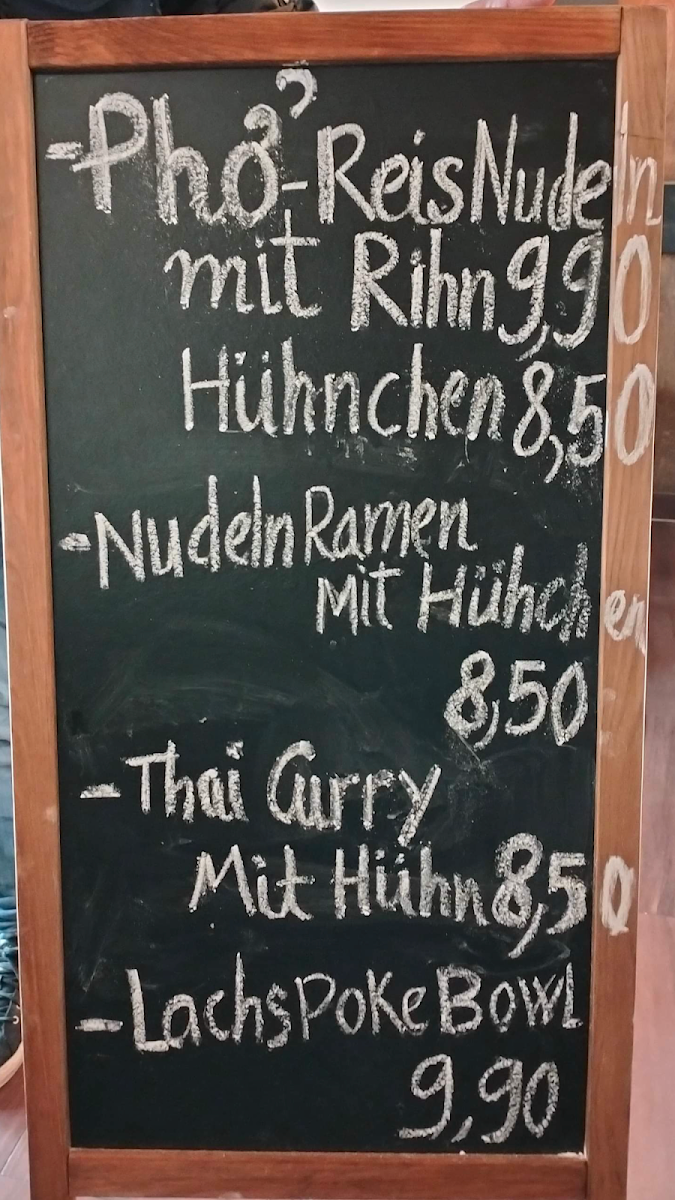 - Phở - ReisNudeln
mit Rihn 9,90
Hühnchen 8,50
- Nudeln Ramen
Mit Hühchen
8,50
- Thai Curry
Mit Hühn 8,50
- Lachs Poke Bowl
9,90